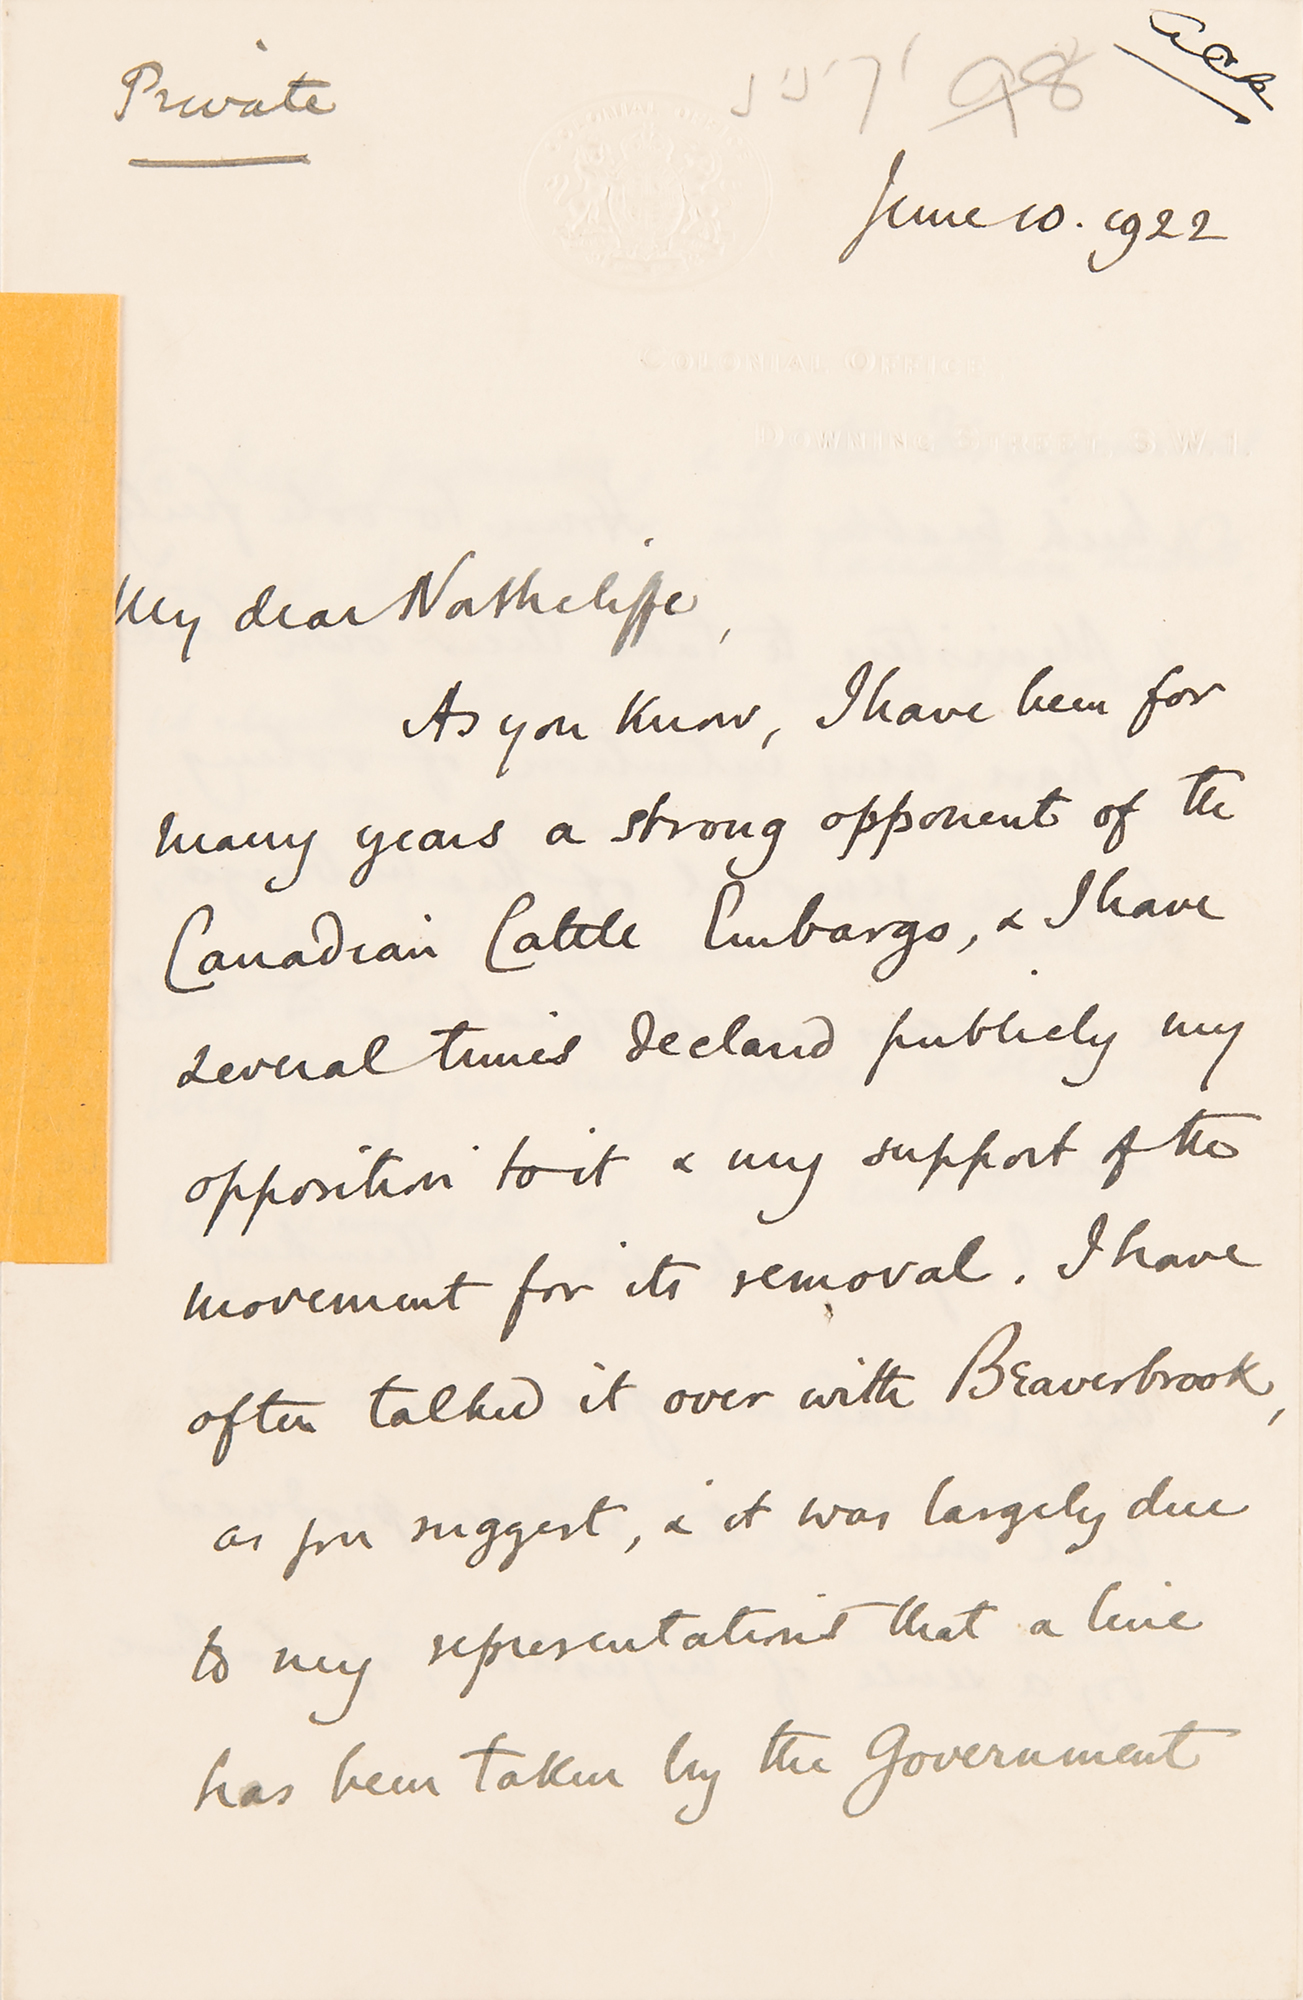 Private
ack
98
June 10. 1922
COLONIAL OFFICE
COLONIAL OFFICE,
DOWNING STREET, S.W.1.
My dear Northcliffe,
As you know, I have been for
many years a strong opponent of the
Canadian Cattle Embargo, & I have
several times declared publicly my
opposition to it & my support of the
movement for its removal. I have
often talked it over with Beaverbrook,
as you suggest, & it was largely due
to my representations that a line
has been taken by the Government